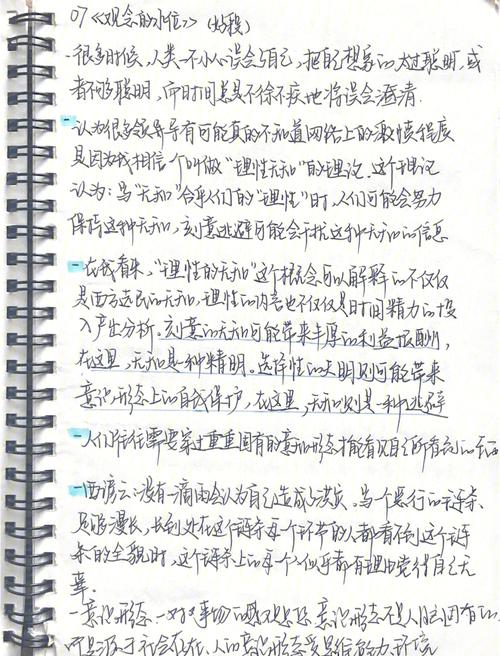 07《观念的水位》（刘瑜）
-很多时候，人类一不小心误会了自己，把自己想象的太过聪明，或
者不够聪明，而时间总是不徐不疾地将误会澄清.
-认为很多领导有可能真的不知道网络上的激愤程度
是因为我相信一个叫做“理性无知”的理论.这个理论
认为：当“无知”合乎人们的“理性”时，人们可能会努力
保持这种无知，刻意逃避可能会干扰这种无知的信息
-在我看来，“理性的无知”这个概念可以解释的不仅仅
是西方选民的无知，理性的内容也不仅仅是时间精力的投
入产出分析。刻意的无知可能带来丰厚的利益报酬，
在这里，无知是一种精明。选择性的失明则可能带来
意识形态上的自我保护，在这里，无知则是一种逃避
-人们往往需要穿过重重固有的意识形态才能看见自己所看到的东西
-西谚云：没有一滴雨会认为自己造成了洪灾。当一个恶行的链条
足够漫长，长到处在这个链条每个环节的人都看不到这个链
条的全貌时，这个链条上的每个人似乎都有理由觉得自己无
辜.
-意识形态-对事物的感观思想 意识形态不是人脑固有的
而是源于社会存在.人的意识形态受思维能力.环境